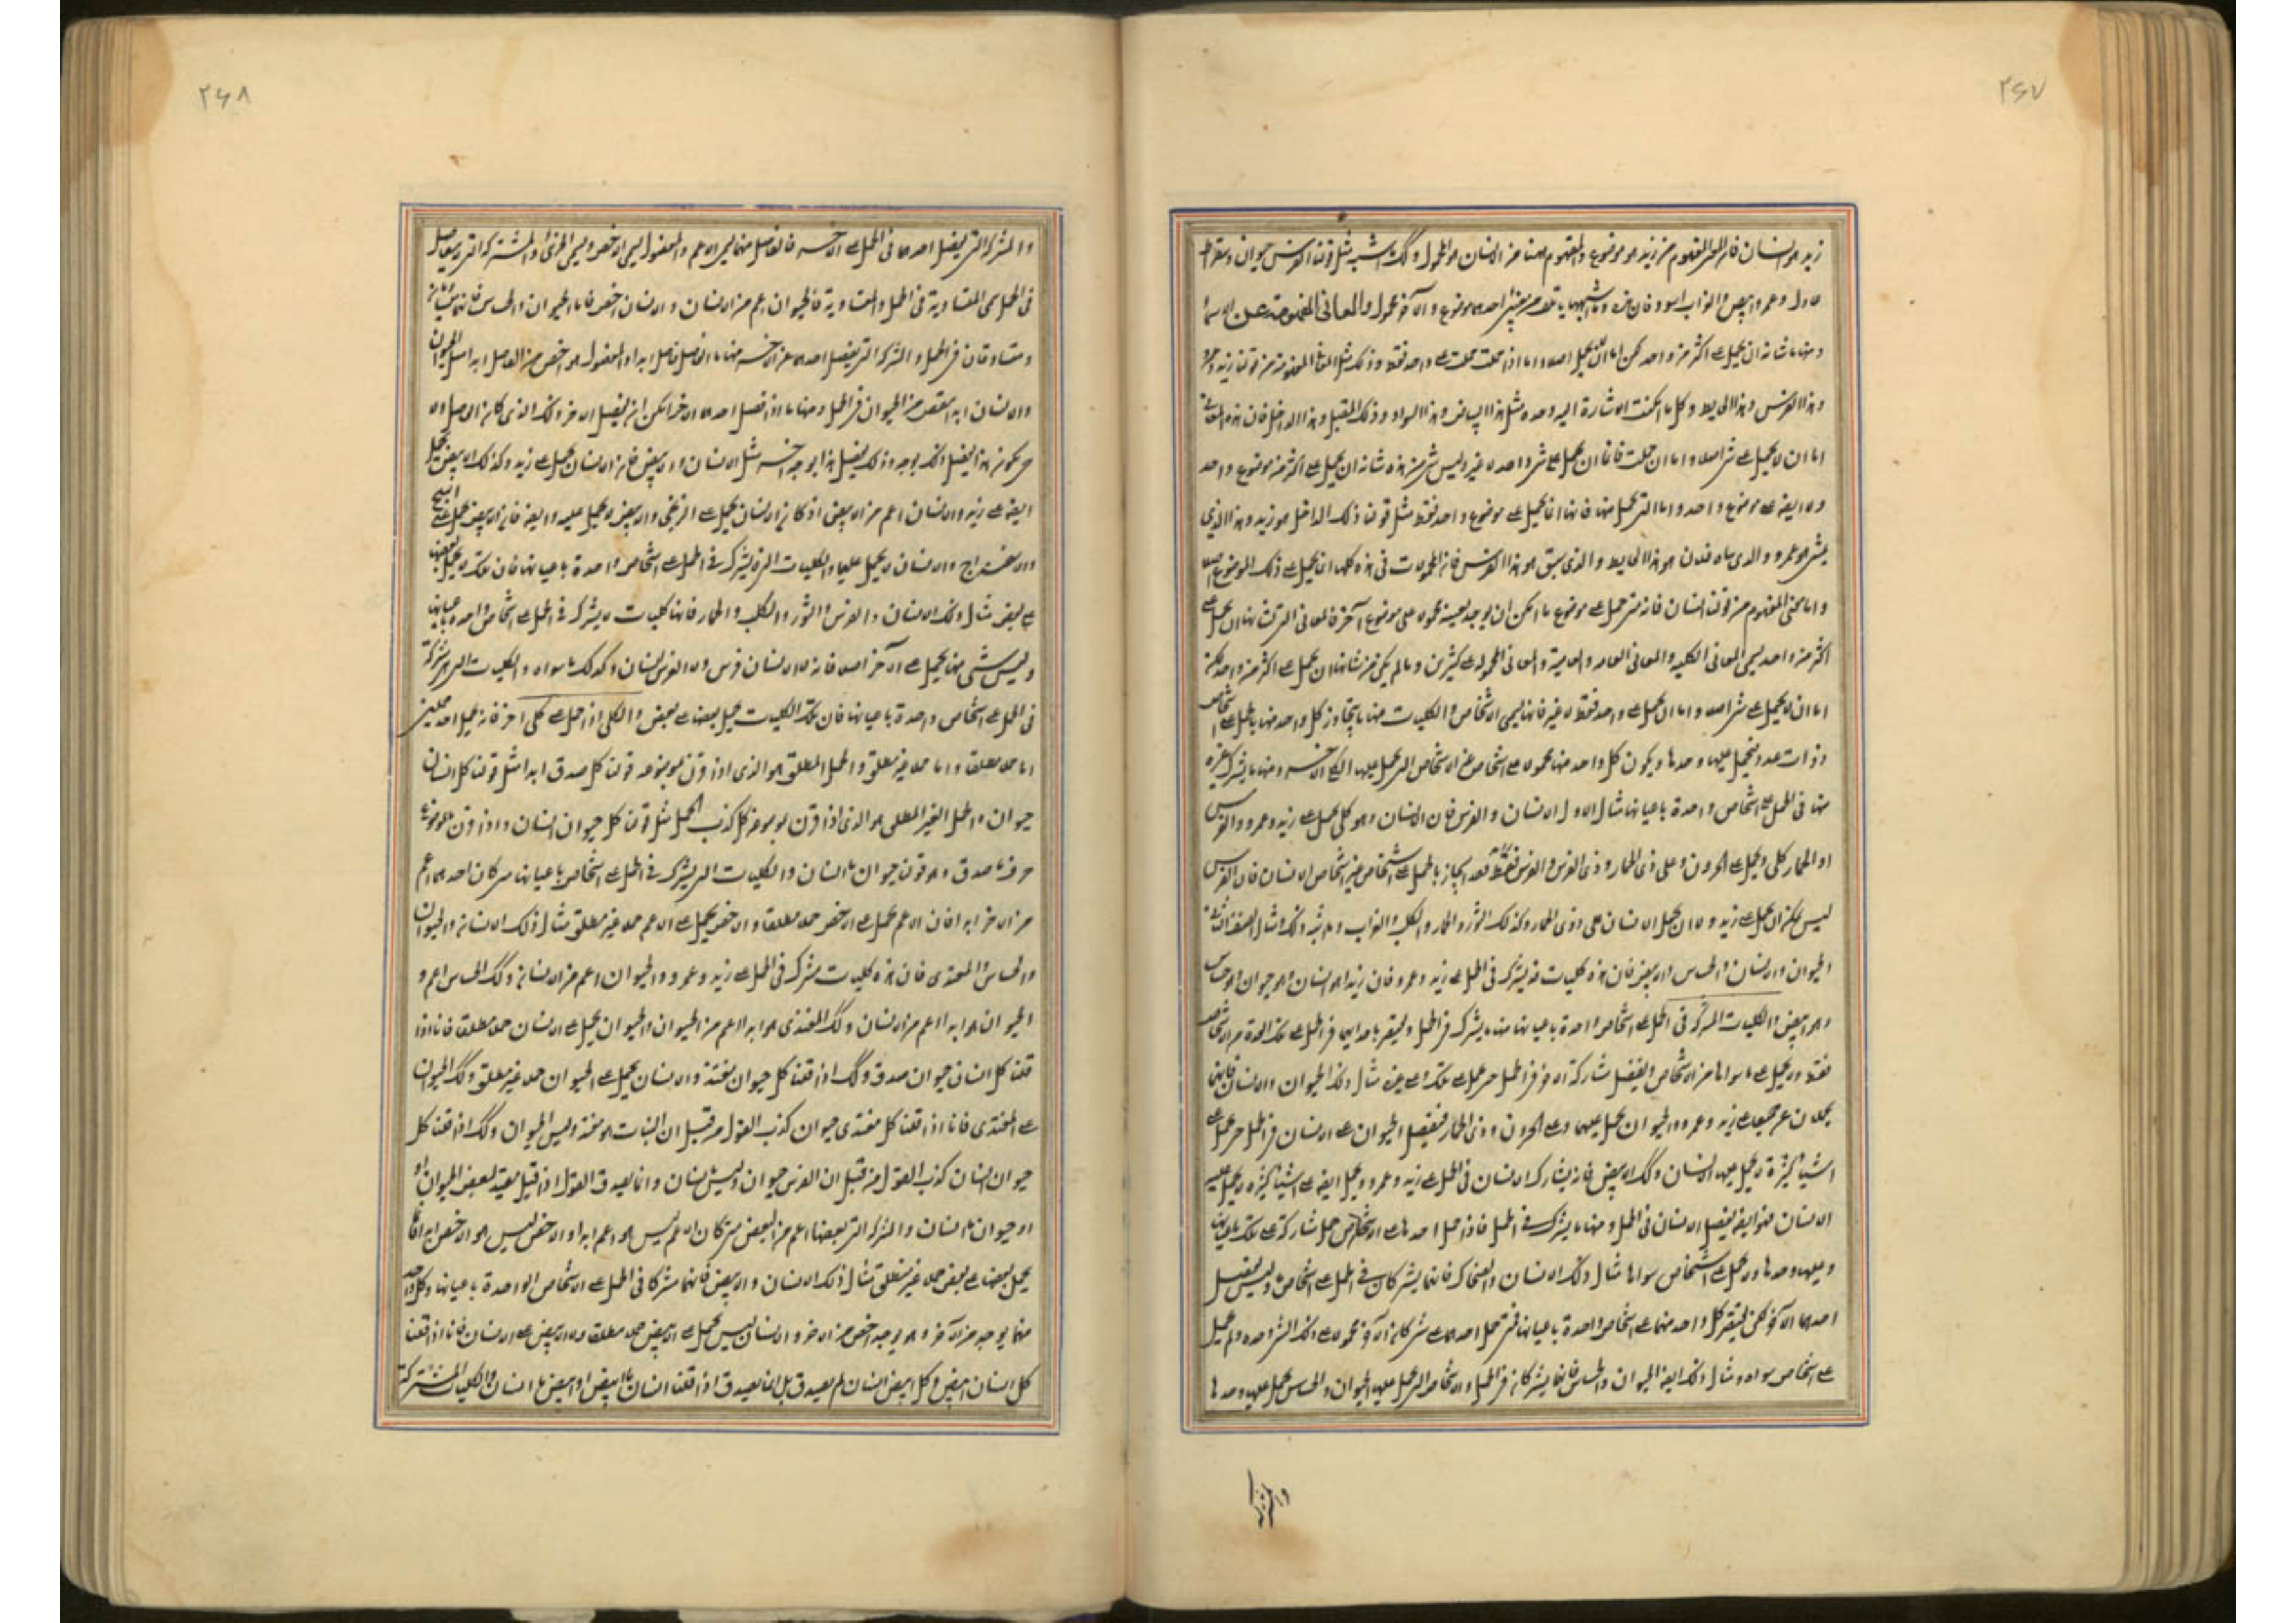 ٢٤٧
زيد هو انسان فان المعنى المفهوم من زيد هو موضوع والمفهوم ههنا من الانسان هو المحمول وكك اشبه مثل قولنا الفرس حيوان وسقراط
عادل وعمرو ابيض والغراب اسود فان هذه وما اشبهها احدهما موضوع والآخر محمول والمعانى المفهومة عن الاسماء
ومنها ما شانه ان يحمل على اكثر من واحد لكن اما ان لا يحمل اصلا واما اذا حملت حملت على واحد فقط وذلك مثل المعانى المفهومة من قولنا زيد وعمرو
وهذا الفرس وهذا الحايط وكل ما امكنت الاشارة اليه وحده مثل هذا البياض وهذا السواد وذلك المقبل وهذا الداخل فان هذه المعانى
اما ان لا يحمل على شى اصلا واما ان حملت فانما ان يحمل على شى واحد لا غير وليس شى من هذه شانه ان يحمل على اكثر من موضوع واحد
ولا ايضا على موضوع واحد واما التى تحمل منها فانها انما يحمل على موضوع واحد فقط مثل قولنا ذلك الداخل هو زيد وهذا الذى
يمشى هو عمرو والذى بناه فلان هو هذا الحايط والذى سبق هو هذا الفرس فان المحمولات فى هذه كلها انما يحمل على ذلك الموضوع
واما المعنى المفهوم من قولنا انسان فانه متى حمل على موضوع ما امكن ان يوجد بعينه محمولا على موضوع آخر فالمعانى التى شانها ان يحمل على
اكثر من واحد يسمى المعانى الكلية والمعانى العامة والعامية والمعانى المحمولة على كثيرين وما لم يكن من شانها ان يحمل على اكثر من واحد لكن
اما ان لا يحمل على شى اصلا واما ان يحمل على واحد فقط لا غير فانها يسمى الاشخاص والكليات منها ما يتجاوز كل واحد منها بالحمل على اشخاص
ذوات عدد فيحمل عليها وحدها ويكون كل واحد منها محمولا على اشخاص غير الاشخاص التى يحمل عليها الكلى الآخر ومنها ما يشترك عدة
منها فى الحمل على اشخاص واحدة باعيانها مثال الاول الانسان والفرس فان الانسان هو كلى يحمل على زيد وعمرو والفرس
او الحمار كلى ويحمل على الحرون وعلى ذى الخمار وذى الفرس والفرس فقط بالحمل على اشخاص غير اشخاص الانسان فان الفرس
ليس يمكن ان يحمل على زيد ولا ان يحمل الانسان على ذى الخمار وكذلك الثور والحمار والكلب والغراب وما اشبه ذلك ومثال الصنف الثانى
الحيوان والانسان والحساس والابيض فان هذه كليات قد يشترك فى الحمل على زيد وعمرو فان زيدا هو انسان وهو حيوان وهو حساس
وهو ابيض والكليات المشتركة فى الحمل على اشخاص واحدة باعيانها منها ما يشترك فى الحمل ويقتصر باحدايها فى الحمل على تلك العدة من الاشخاص
فقط ولا يحمل على ما سواها من الاشخاص ويفضل مشاركه الآخر فى الحمل حتى يحمل على تلك وعلى غيرها مثال ذلك الحيوان والانسان فانهما
يحملان على جميعا على زيد وعمرو والحيوان يحمل عليهما وعلى الحرون وذى الخمار فيفضل الحيوان على الانسان فى الحمل حتى يحمل على
اشياء كثيرة لا يحمل عليها الانسان وكك الابيض فانه يشارك الانسان فى الحمل على زيد وعمرو ويحمل ايضا على اشياء كثيرة لا يحمل عليها
الانسان فهو ايضا يفضل الانسان فى الحمل ومنها ما يشترك فى الحمل فاذا حمل احدها على الاشخاص حمل مشاركه على تلك باعيانها
وعليها وحدها ولا يحمل على اشخاص سواها مثال ذلك الانسان والضحاك فانهما يشتركان فى الحمل على اشخاص وليس يفضل
احدهما الآخر لكن يقتصر كل واحد منهما على اشخاص واحدة باعيانها فمتى حمل احدهما على شى كان الآخر محمولا على ذلك الشى وحده ولم يحمل
على اشخاص سواه ومثال ذلك ايضا الحيوان والحساس فانهما يشتركان فى الحمل والاشخاص التى يحمل عليها الحيوان والحساس يحمل عليها وحدها
والمشتركة
٢٤٨
والمشتركة التى يفضل احدها فى الحمل على الآخر فالفاضل منها يسمى الاعم والمفضول يسمى الاخص ويسمى الجزئى والمشتركة التى لا يتفاضل
فى الحمل يسمى المتساوية فى الحمل والمتساوية فالحيوان اعم من الانسان والانسان اخص فاما الحيوان والحساس فانهما متساويان
ومتساوقان فى الحمل والمشتركة التى يفضل احدهما على الآخر منها ما الفاضل فاضل ابدا والمفضول هو اخص من الفاضل ابدا مثل الحيوان
والانسان ابدا انقص من الحيوان فى الحمل ومنها ما اذا فضل احدهما الآخر امكن ان يفضل الآخر ذلك الذى كان الفاضل ولا
حتى يكون هذا يفضل ذلك بوجه وذلك يفضل هذا بوجه آخر مثل الانسان والابيض فان الانسان يحمل على زيد وكذلك الابيض يحمل
ايضا على زيد والانسان اعم من الابيض اذ كان الانسان يحمل على الزنجى والابيض لا يحمل عليه وايضا فان الابيض يحمل على الثلج
والاسفيداج والانسان لا يحمل عليها والكليات التى لا يشترك فى الحمل على اشخاص واحدة باعيانها فان تلك لا يحمل بعضها
على بعض مثال ذلك الانسان والفرس والثور والكلب والحمار فانها كليات لا يشترك فى الحمل على اشخاص واحدة باعيانها
وليس شى منها يحمل على الآخر اصلا فانه لا الانسان فرس ولا الفرس انسان وكذلك ما سواه والكليات التى هى مشتركة
فى الحمل على اشخاص واحدة باعيانها فان تلك الكليات يحمل بعضها على بعض والكلى اذا حمل على كلى آخر فانه يحمل احد حملين
اما حملا مطلقا واما حملا غير مطلق والحمل المطلق هو الذى اذا قرن بموضوعه قولنا كل صدق ابدا مثل قولنا كل انسان
حيوان والحمل الغير المطلق هو الذى اذا قرن بموضوعه كل كذب الحمل مثل قولنا كل حيوان انسان واذا قرن بالموضوع
حرف ما صدق وهو قولنا حيوان ما انسان والكليات التى يشترك فى الحمل على اشخاص باعيانها متى كان احدهما اعم
من الآخر ابدا فان الاعم يحمل على الاخص حملا مطلقا والاخص يحمل على الاعم حملا غير مطلق مثال ذلك الانسان والحيوان
والحساس والمغتذى فان هذه كليات يشترك فى الحمل على زيد وعمرو والحيوان اعم من الانسان وكك الحساس اعم و
الحيوان هو ابدا اعم من الانسان وكك المغتذى هو ابدا اعم من الحيوان والحيوان يحمل على الانسان حملا مطلقا فانا اذا
قلنا كل انسان حيوان صدق وكك اذا قلنا كل حيوان مغتذ والانسان يحمل على الحيوان حملا غير مطلق وكك الحيوان
على المغتذى فانا اذا قلنا كل مغتذى حيوان كذب القول من قبل ان النبات هو مغتذ وليس الحيوان وكك اذا قلنا كل
حيوان انسان كذب القول من قبل ان الفرس حيوان وليس بانسان وانما يصدق القول اذا قيل بعض الحيوان
او حيوان ما انسان والمشتركة التى بعضها اعم من البعض متى كان الاعم ليس هو اعم ابدا والاخص ليس هو الاخص ابدا فانما
يحمل بعضها على بعض حملا غير مطلق مثال ذلك الانسان والابيض فانهما مشتركان فى الحمل على الاشخاص الواحدة باعيانها وكل واحد
منهما يوجد من الآخر وهو يوجد اخص من الآخر والانسان ليس يحمل على الابيض حملا مطلقا ولا الابيض على الانسان فانا اذا قلنا
كل انسان ابيض وكل ابيض انسان لم يصدق بل انما يصدق اذا قلنا انسان ما ابيض او ابيض ما انسان والكليات المشتركة